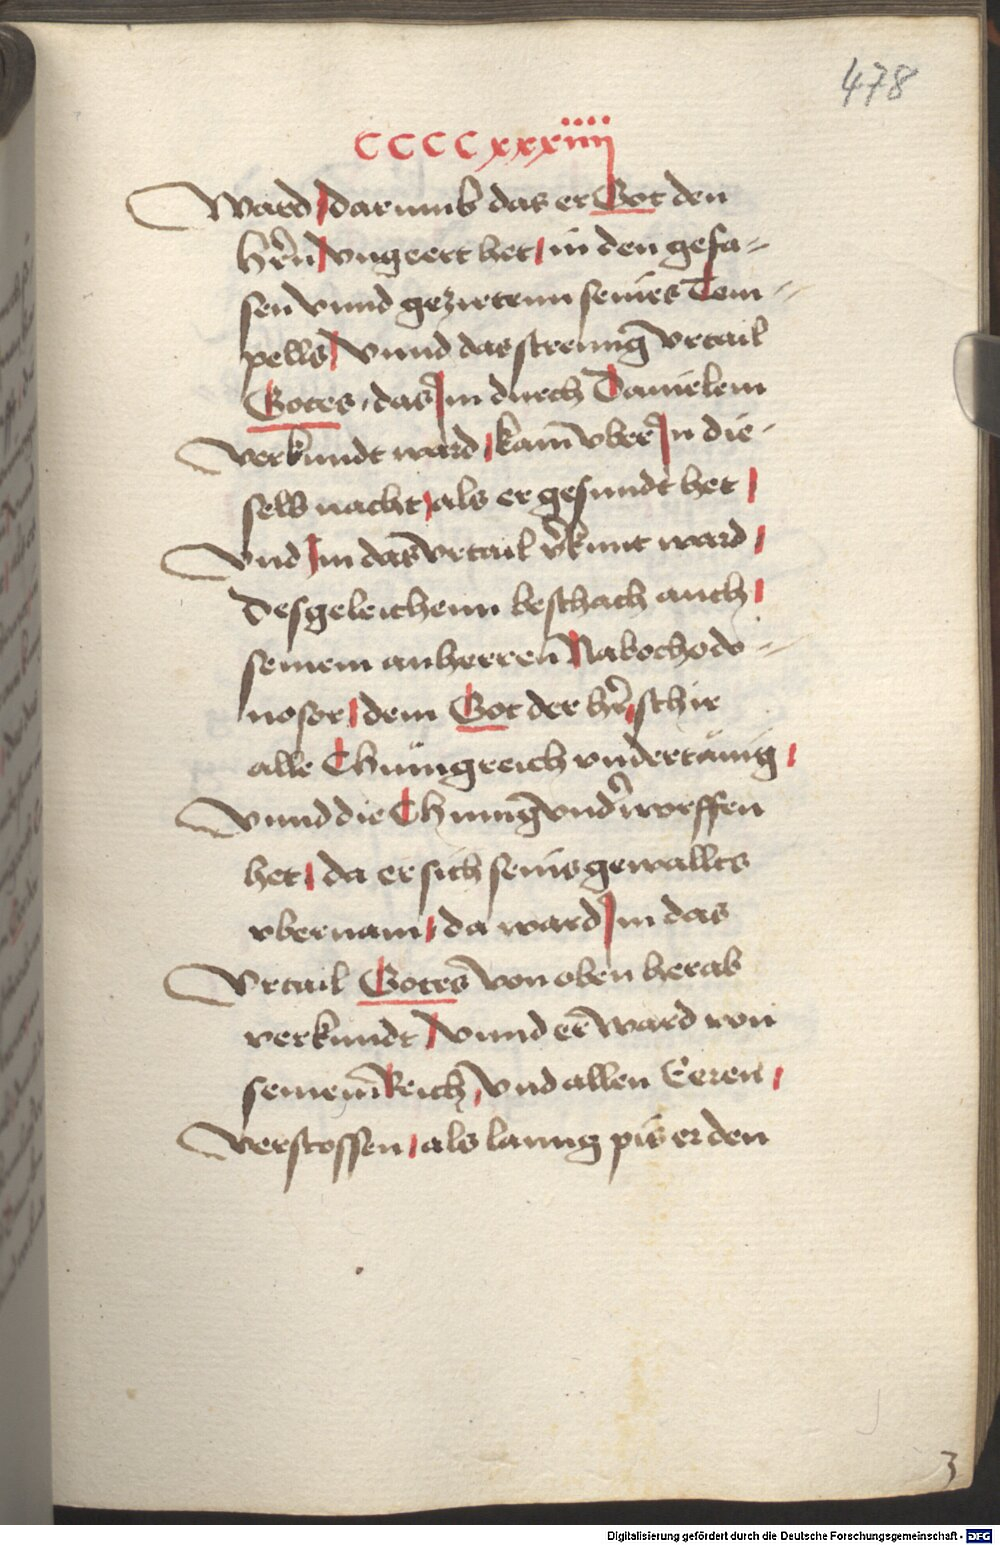 478
CCCCxxxiiii
Ward / darumb das er Got den
hr̃n / vngeert het / in den gefa=
sen vnnd gezirtenn seines Tem=
pells / vnnd das strenng vrtail
Gotes, das Im durch Danielem
verkundt ward / kam vber In die
selb nacht / als er gesundt het /
Vnd Im das vrtail v̾kunt ward /
desgeleichenn beschach auch /
seinem anherren Nabochodo=
nosor / dem Got der hr̃ / schir
alle Chüngreich vndertänig /
Vnnd die Chunng vnd̾worffen
het / da er sich seins gewallts
vbernam / da ward Im das
Vrtail Gotes von oben herab
verkundt / vnnd er ward von
seinem Reich / Vnd allen Eeren /
Verstossen / als lanng pis er den
3
Digitalisierung gefördert durch die Deutsche Forschungsgemeinschaft - DFG